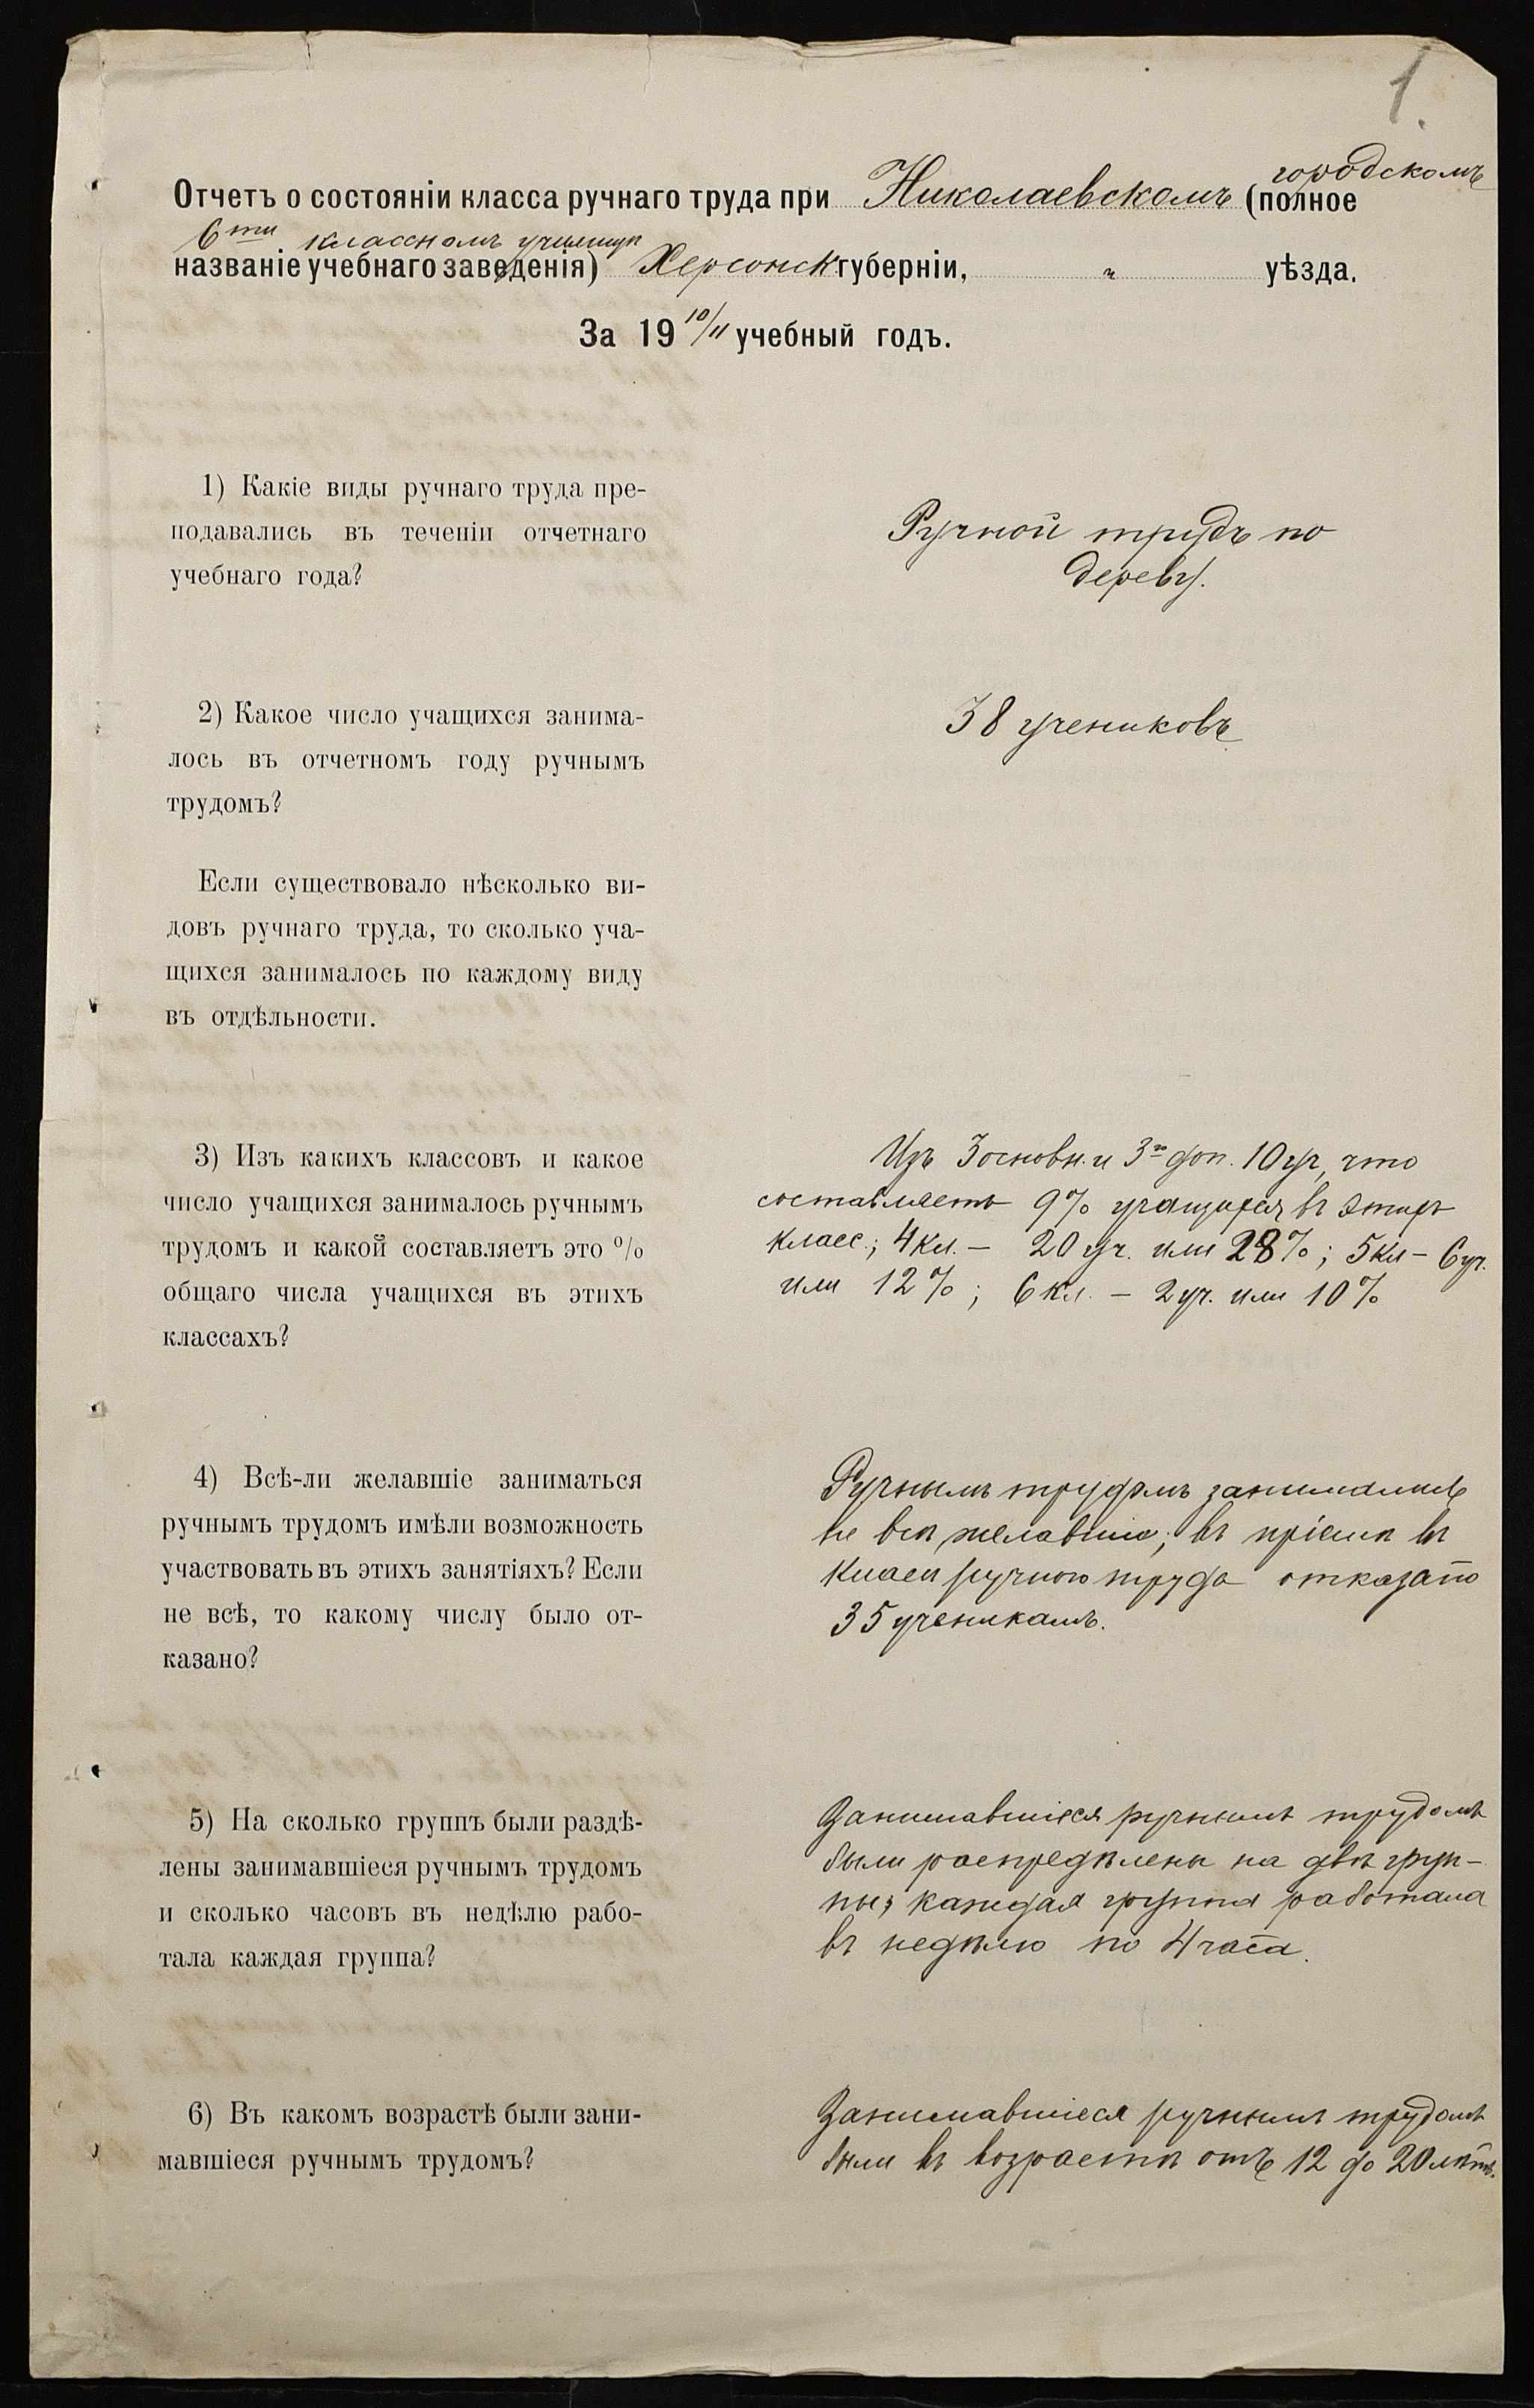 1.
городскомъ
Отчетъ о состояніи класса ручнаго труда при Николаевскомъ (полное
6ти классномъ училищѣ
названіе учебнаго заведенія) Херсонск губерніи, " уѣзда.
За 19 10/11 учебный годъ.
1) Какіе виды ручнаго труда пре-
подавались въ теченіи отчетнаго
учебнаго года?
Ручной трудъ по
дереву.
2) Какое число учащихся занима-
лось въ отчетномъ году ручнымъ
трудомъ?
38 учениковъ
Если существовало нѣсколько ви-
довъ ручнаго труда, то сколько уча-
щихся занималось по каждому виду
въ отдѣльности.
3) Изъ какихъ классовъ и какое
число учащихся занималось ручнымъ
трудомъ и какой составляетъ это %
общаго числа учащихся въ этихъ
классахъ?
Изъ 3 основн. и 3го доп. 10 уч, что
составляетъ 9% учащихся въ этихъ
класс.; 4 кл. - 20 уч. или 28%; 5 кл - 6 уч.
или 12%; 6 кл. - 2 уч. или 10%
4) Всѣ-ли желавшіе заниматься
ручнымъ трудомъ имѣли возможность
участвовать въ этихъ занятіяхъ? Если
не всѣ, то какому числу было от-
казано?
Ручнымъ трудомъ занимались
не всѣ желавшіе; въ пріемѣ въ
классъ ручного труда отказано
35 ученикамъ.
5) На сколько группъ были раздѣ-
лены занимавшіеся ручнымъ трудомъ
и сколько часовъ въ недѣлю рабо-
тала каждая группа?
Занимавшіеся ручнымъ трудомъ
были распредѣлены на двѣ груп-
пы; каждая группа работала
въ недѣлю по 4 часа.
6) Въ какомъ возрастѣ были зани-
мавшіеся ручнымъ трудомъ?
Занимавшіеся ручнымъ трудомъ
были въ возрастѣ отъ 12 до 20 лѣтъ.